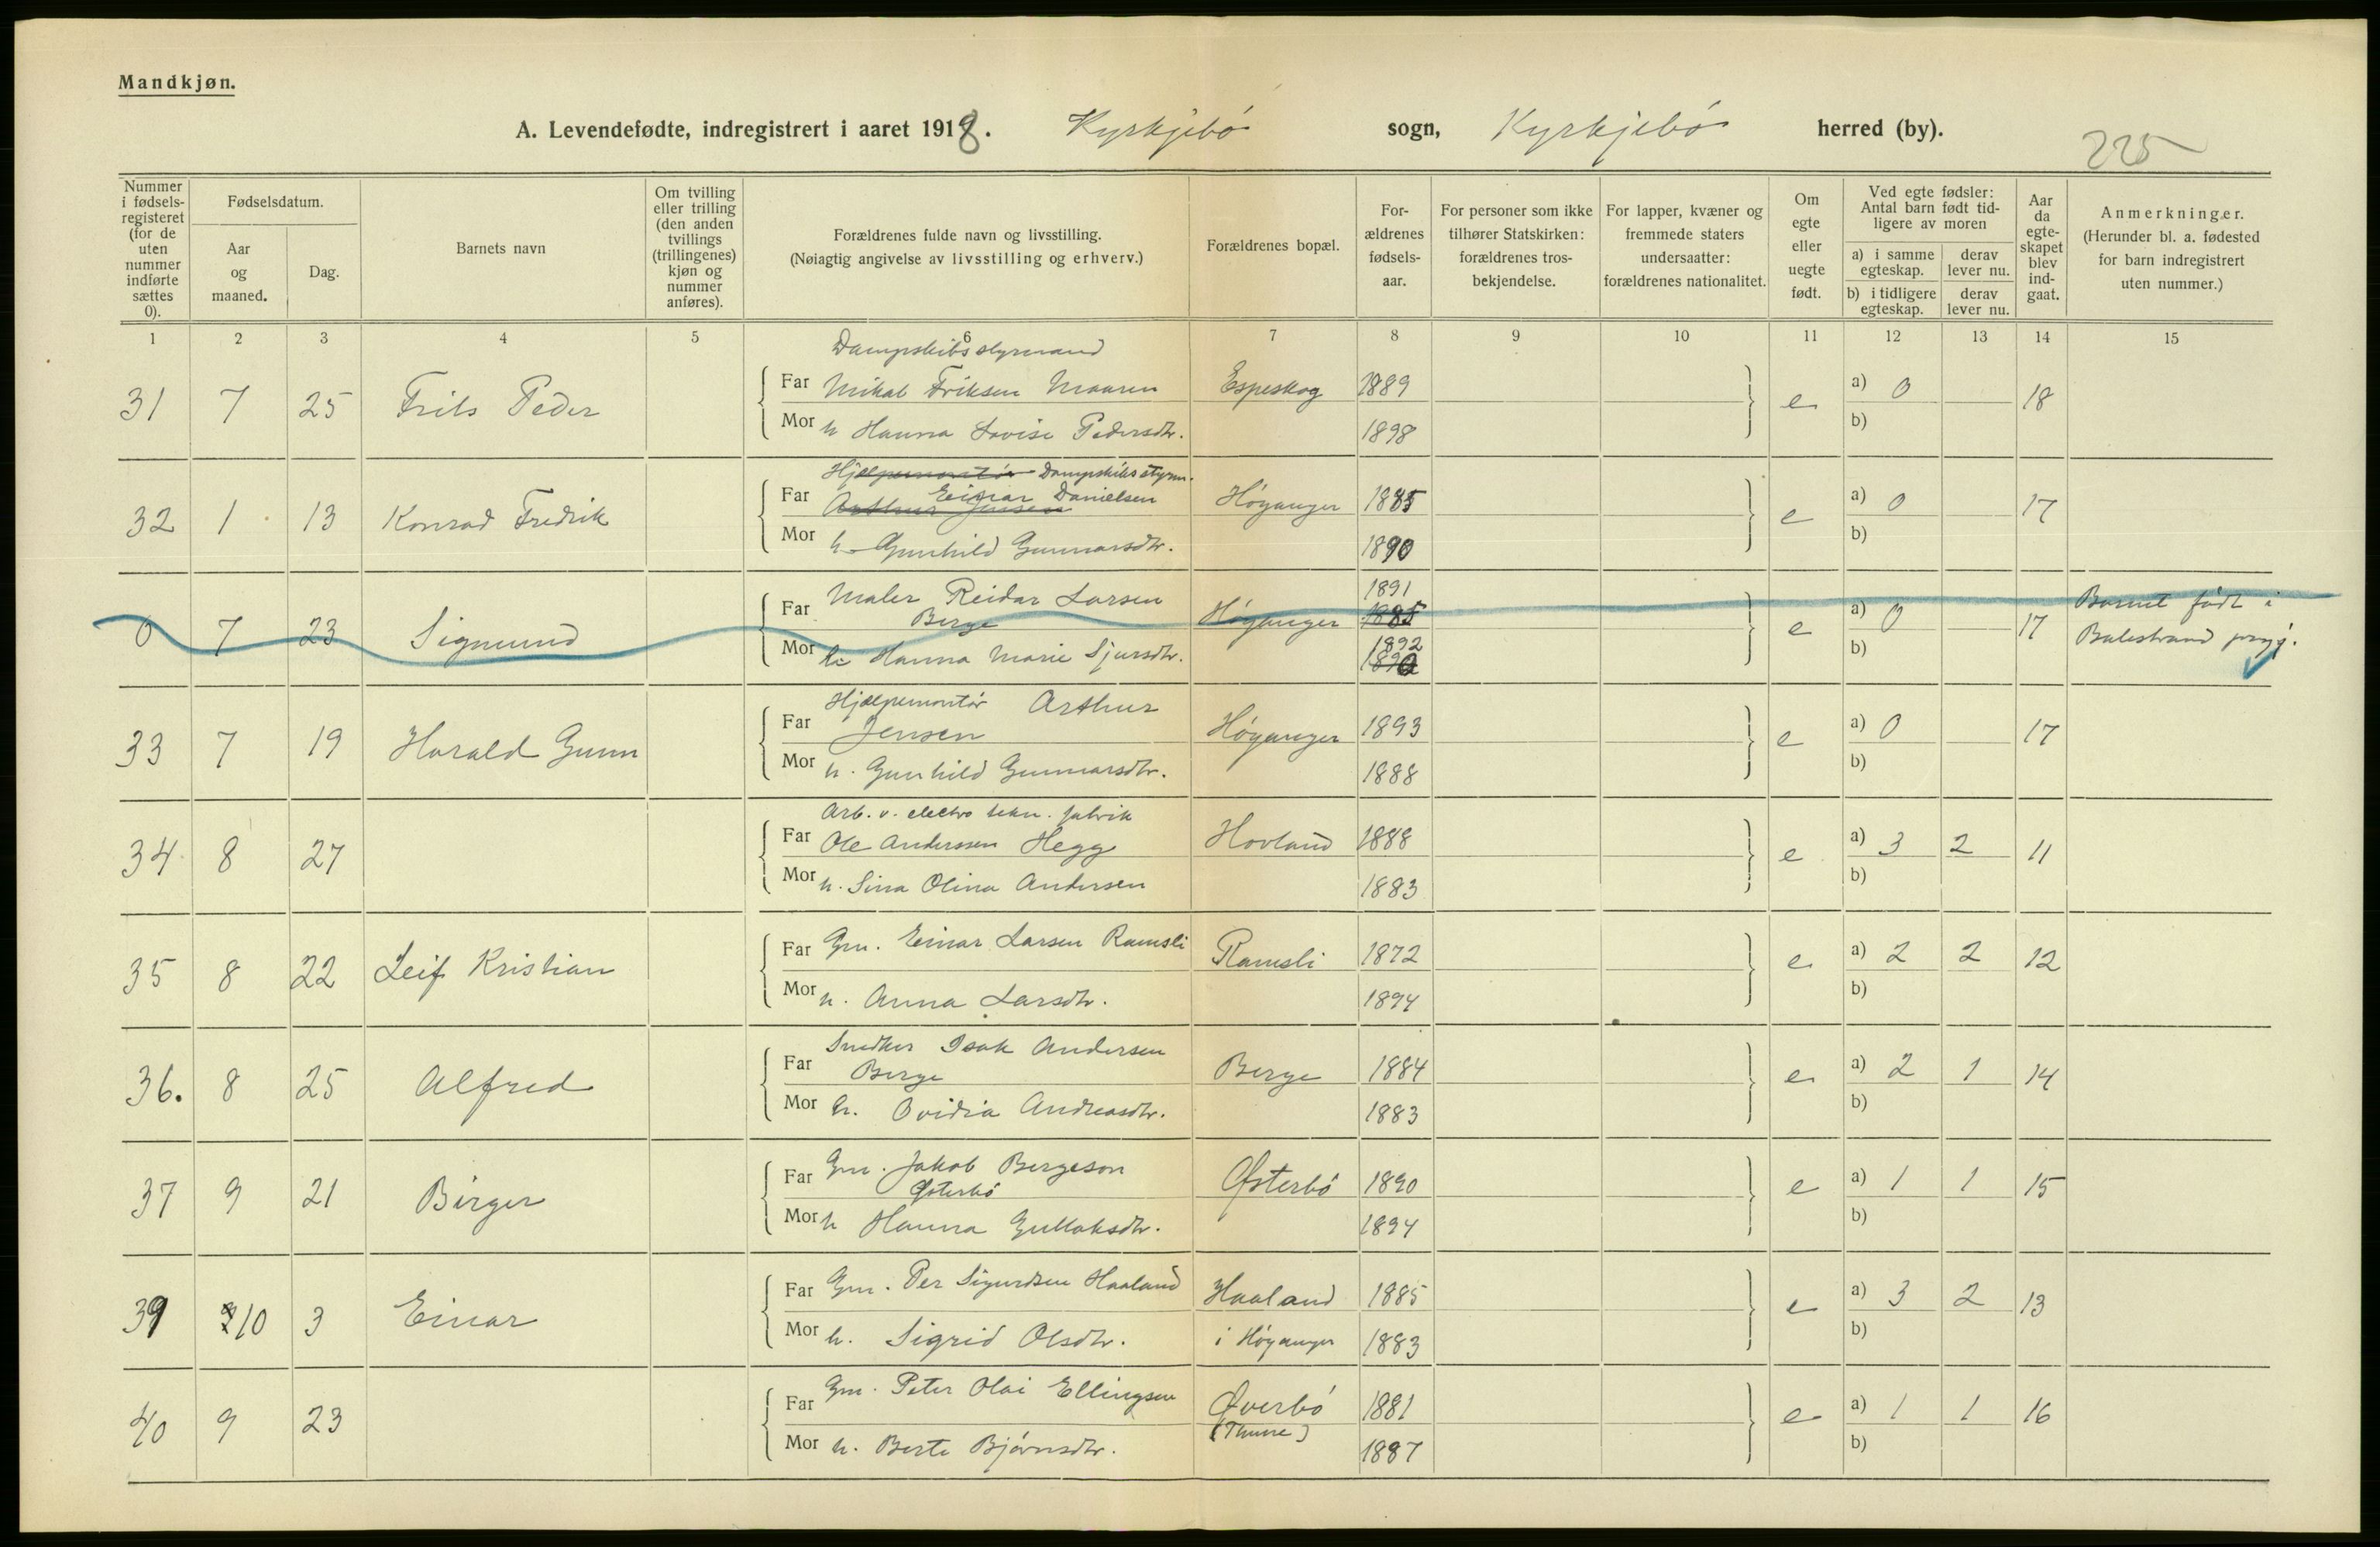 Mandkjøn.
A. Levendefødte, indregistrert i aaret 1918. Kyrkjebö sogn, Kyrkjebö herred (by).
225
Nummer i fødsels-registeret (for de uten nummer indførte sættes 0).
Fødselsdatum.
Aar og maaned.
Dag.
Barnets navn
Om tvilling eller trilling (den anden tvillings (trillingenes) kjøn og nummer anføres).
Forældrenes fulde navn og livsstilling.
(Nøiagtig angivelse av livsstilling og erhverv.)
Forældrenes bopæl.
For-ældrenes fødsels-aar.
For personer som ikke tilhører Statskirken: forældrenes tros-bekjendelse.
For lapper, kvæner og fremmede staters undersaatter: forældrenes nationalitet.
Om egte eller uegte født.
Ved egte fødsler: Antal barn født tid-ligere av moren
a) i samme egteskap.
derav lever nu.
b) i tidligere egteskap.
derav lever nu.
Aar da egte-skapet blev ind-gaat.
Anmerkninger.
(Herunder bl. a. fødested for barn indregistrert uten nummer.)
1 2 3 4 5 6 7 8 9 10 11 12 13 14 15
Dampskibsstyrmand
31 7 25 Frits Peder Far Mikal Eriksen Maaren Espeskog 1889 e a) 0 18
Mor h Hanna Lovise Pedersdtr. 1898 b)
Hjælpemontör Dampskibsstyrm.
32 1 13 Konrad Fredrik Far Arthur Jensen Einar Danielsen Höyanger 1885 e a) 0 17
Mor h. Gunhild Gunnarsdtr. 1890 b)
Maler Reidar Larsen 1891
0 7 23 Sigmund Far Berge Höyanger 1885 e a) 0 17 Barnet födt i
Mor h. Hanna Marie Sjursdtr. 1892 1890 b) Balestrand prgj.
Hjælpemontör Arthur
33 7 19 Harald Gunn Far Jensen Höyanger 1893 e a) 0 17
Mor h. Gunhild Gunnarsdtr. 1888 b)
Arb. v. electro tekn. fabrik
34 8 27 Far Ole Anderssen Hegg Hovland 1888 e a) 3 2 11
Mor h. Sina Olina Andersen 1883 b)
35 8 22 Leif Kristian Far Gm. Einar Larsen Ramsli Ramsli 1872 e a) 2 2 12
Mor h. Anna Larsdtr. 1894 b)
Snedker Isak Andersen
36. 8 25 Alfred Far Berge Berge 1884 e a) 2 1 14
Mor h. Ovidia Andreasdtr. 1883 b)
37 9 21 Birger Far Gm. Jakob Bergeson Østerbö 1890 e a) 1 1 15
Østerbö
Mor h Hanna Gullaksdtr. 1894 b)
39 10 3 Einar Far Gm. Per Sigurdsen Haaland Haaland 1885 e a) 3 2 13
Mor h. Sigrid Olsdtr. i Höyanger 1883 b)
40 9 23 Far Gm. Peter Olai Ellingsen Øverbö 1881 e a) 1 1 16
(Thune)
Mor h. Berte Björnsdtr. 1887 b)